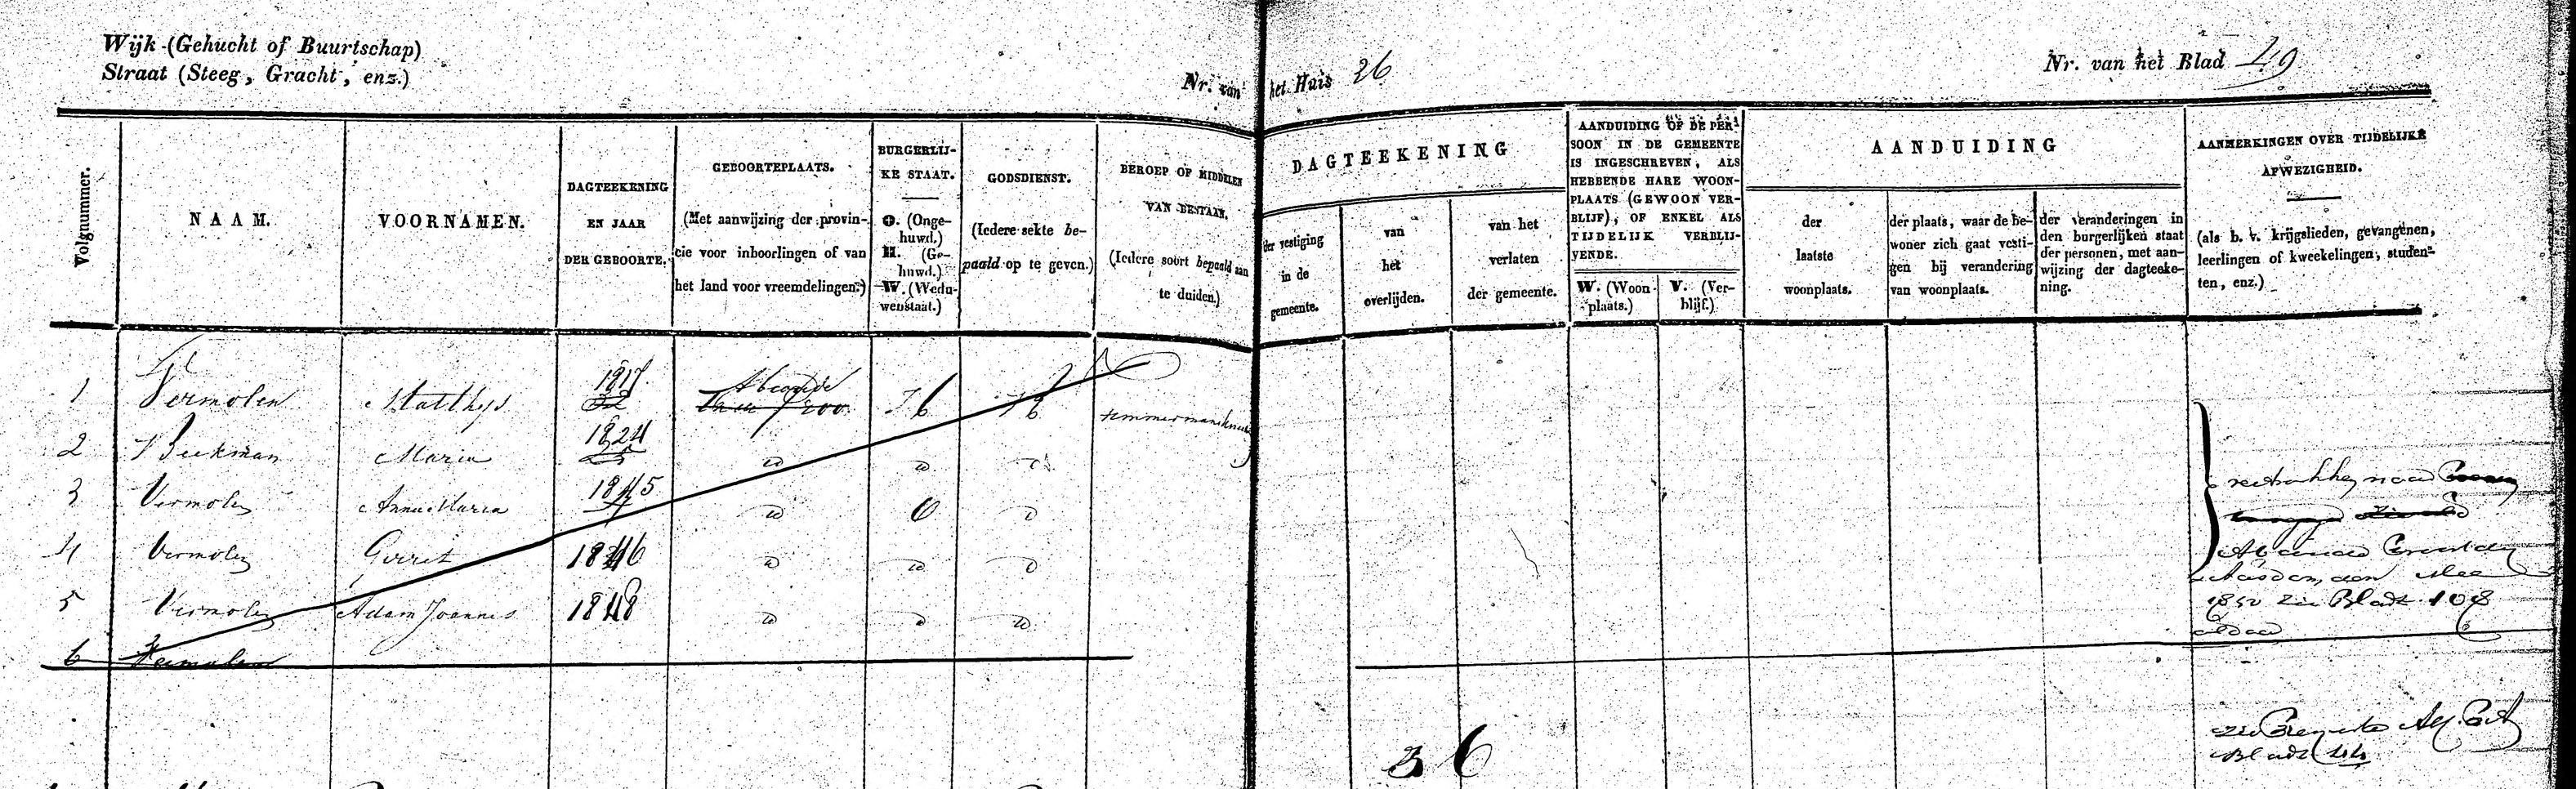 Wijk (Gehucht of Buurtschap)
Straat (Steeg, Gracht, enz.)
Nr. van het Huis 26
Nr. van het Blad 49
Volgnummer.
NAAM.
VOORNAMEN.
DAGTEEKENING
EN JAAR
DER GEBOORTE.
GEBOORTEPLAATS.
(Met aanwijzing der provin-
cie voor inboorlingen of van
het land voor vreemdelingen.)
BURGERLIJ-
KE STAAT.
O. (Onge-
huwd.)
H. (Ge-
huwd.)
W. (Wedu-
wenstaat.)
GODSDIENST.
(Iedere sekte be-
paald op te geven.)
BEROEP OF MIDDELEN
VAN BESTAAN.
(Iedere soort bepaald aan
te duiden.)
DAGTEEKENING
der vestiging
in de
gemeente.
van
het
overlijden.
van het
verlaten
der gemeente.
AANDUIDING OF DE PER-
SOON IN DE GEMEENTE
IS INGESCHREVEN, ALS
HEBBENDE HARE WOON-
PLAATS (GEWOON VER-
BLIJF), OF ENKEL ALS
TIJDELIJK VERBLIJ-
VENDE.
W. (Woon-
plaats.)
V. (Ver-
blijf.)
AANDUIDING
der
laatste
woonplaats.
der plaats, waar de be-
woner zich gaat vesti-
gen bij verandering
van woonplaats.
der veranderingen in
den burgerlijken staat
der personen, met aan-
wijzing der dagteeke-
ning.
AANMERKINGEN OVER TIJDELIJKE
AFWEZIGHEID.
(als b. v. krijgslieden, gevangenen,
leerlingen of kweekelingen, studen-
ten, enz.)
1 Vermolen Matthijs 1817 Abcoude timmermansknecht
2 Beekman Maria 1824
3 Vermolen Anna Maria 1845 O
4 Vermolen Gerret 1846
5 Vermolen Adam Joannes 1848
6 Vermolen
vertrokken naar
Abcoude
den Mei
1850 zie Bladz 108
aldaar
36
zie
Bladz 44